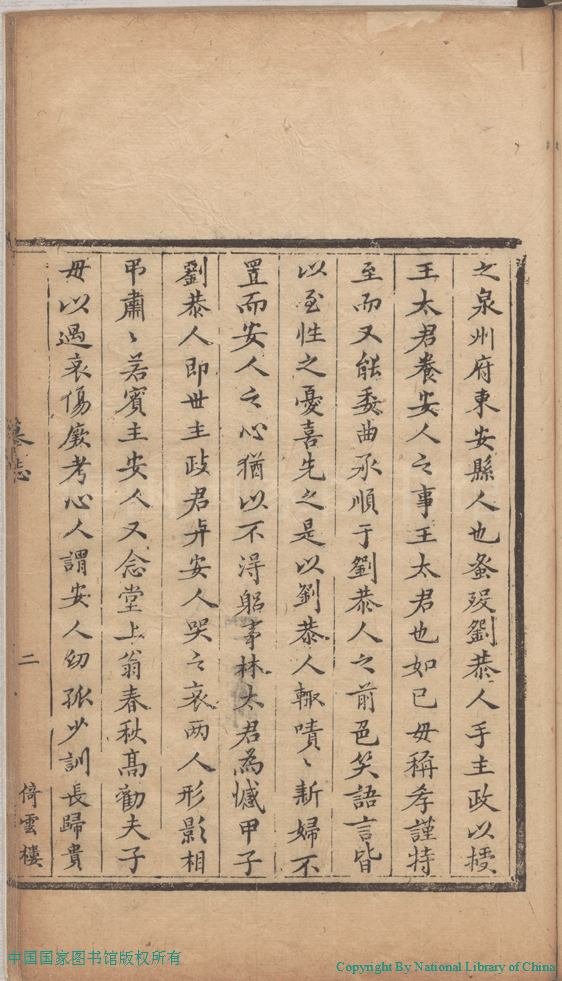 之泉州府東安縣人也蚤歿劉恭人手主政以授
王太君養安人之事王太君也如己毋稱孝謹特
至而又能委曲承順于劉恭人之前色笑語言皆
以至性之憂喜先之是以劉恭人輒嘖〻新婦不
置而安人之心猶以不淂躬事林太君為憾甲子
劉恭人即世主政君與安人哭之哀两人形影相
弔肅〻若賓主安人又念堂上翁春秋高勸夫子
毋以過哀傷厥考心人謂安人幼孤少訓長歸貴
墓誌
二
倚雲樓
中国国家图书馆版权所有
Copyright By National Library of China